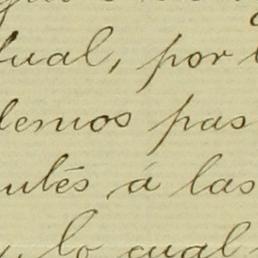 tual, por
demos pas
utés á las
lo cual